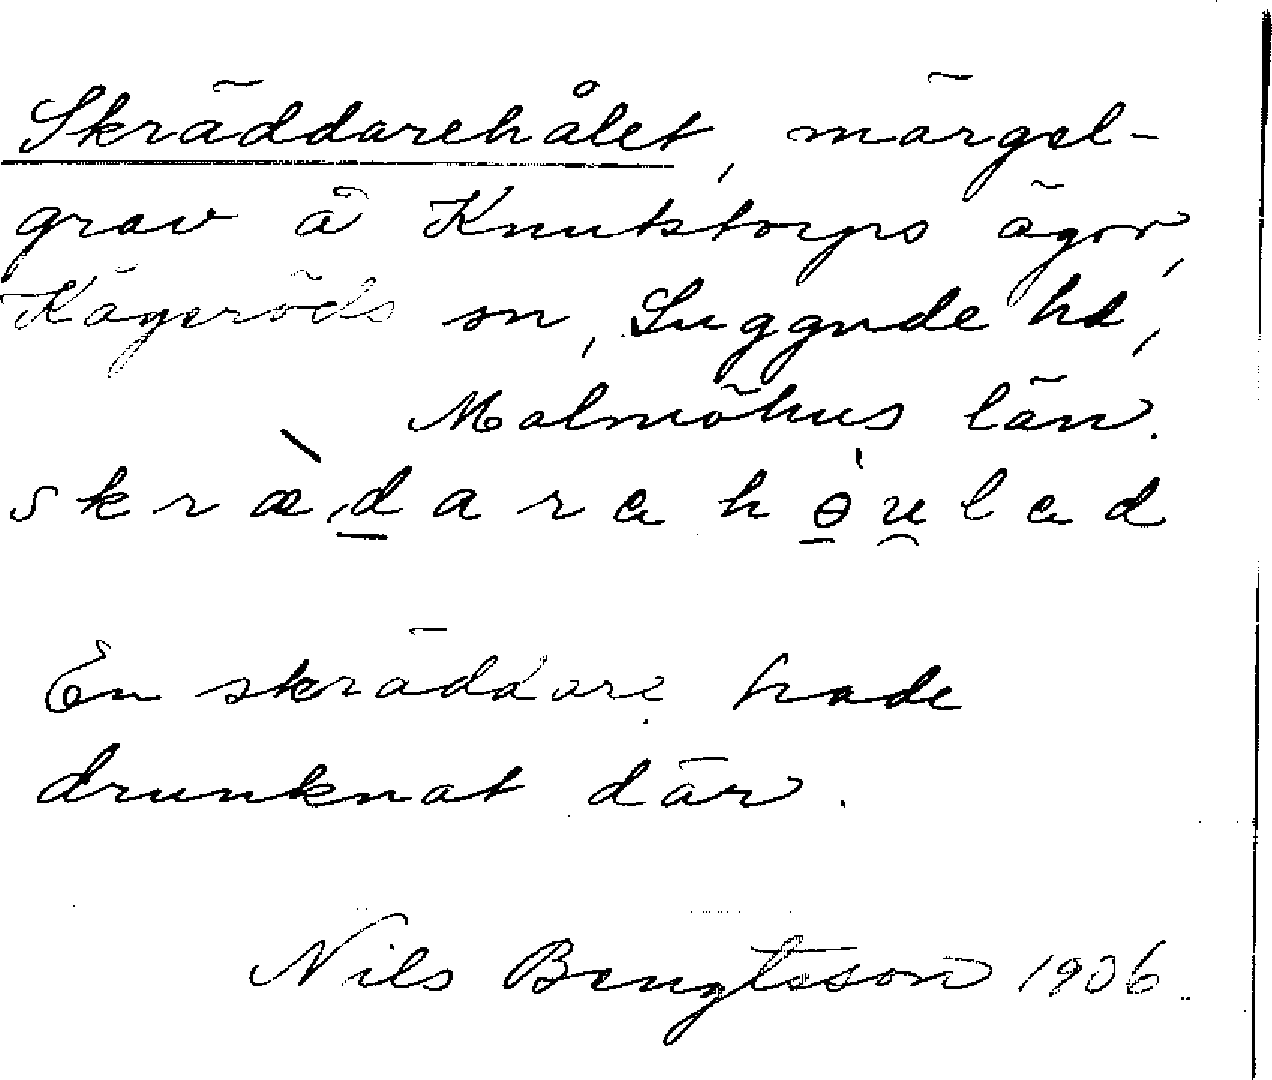 Skräddarehålet, märgel-
grav å Knutstorps ägor,
Kågeröds sn, Luggude hd,
Malmöhus län.
skræ̀dara hө̀u̯lad
En skräddare hade
drunknat där.
Nils Bengtsson 1936.